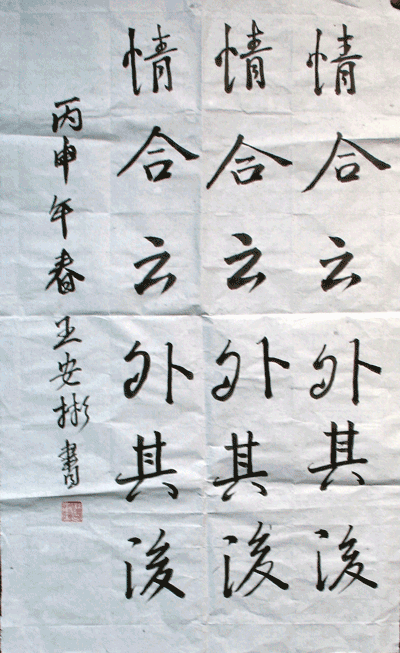 情合云外其後
情合云外其後
情合云外其後
丙申年春王安彬書